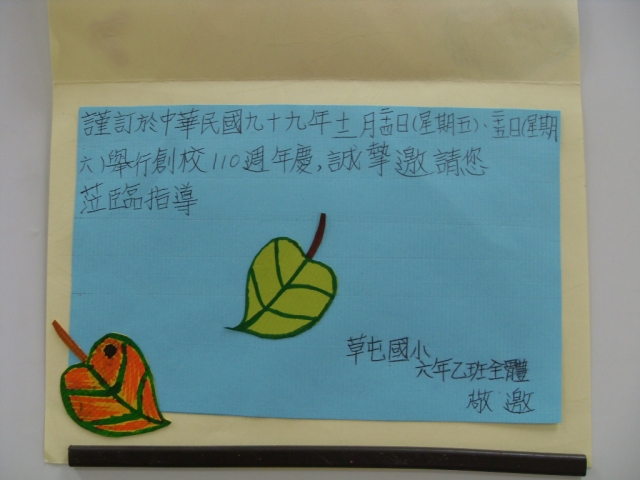 謹訂於中華民國九十九年十二月二十四日(星期五)、二十五日(星期
六)舉行創校110週年慶,誠摯邀請您
蒞臨指導
草屯國小
六年乙班全體
敬邀